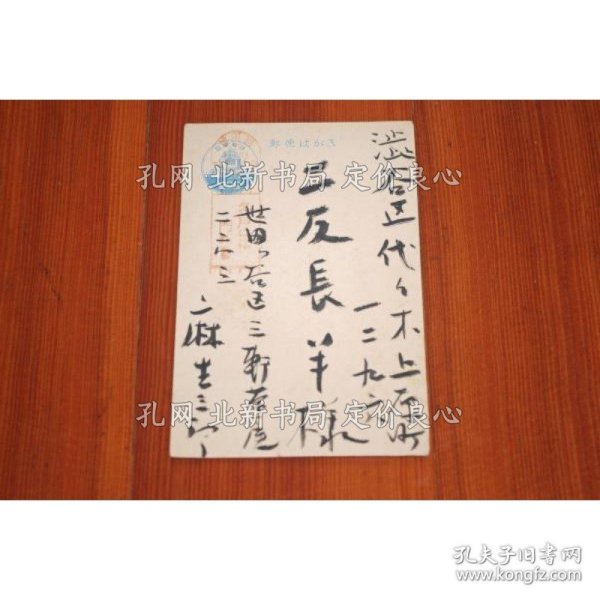 郵便はがき
渋谷区代々木上原町
一二九六
呂反長羊様
世田ヶ谷区三軒茶屋
二二六三
麻生三郎
孔网 北新书局 定价良心
孔网 北新书局 定价良心
孔夫子旧书网
www.kongfz.com